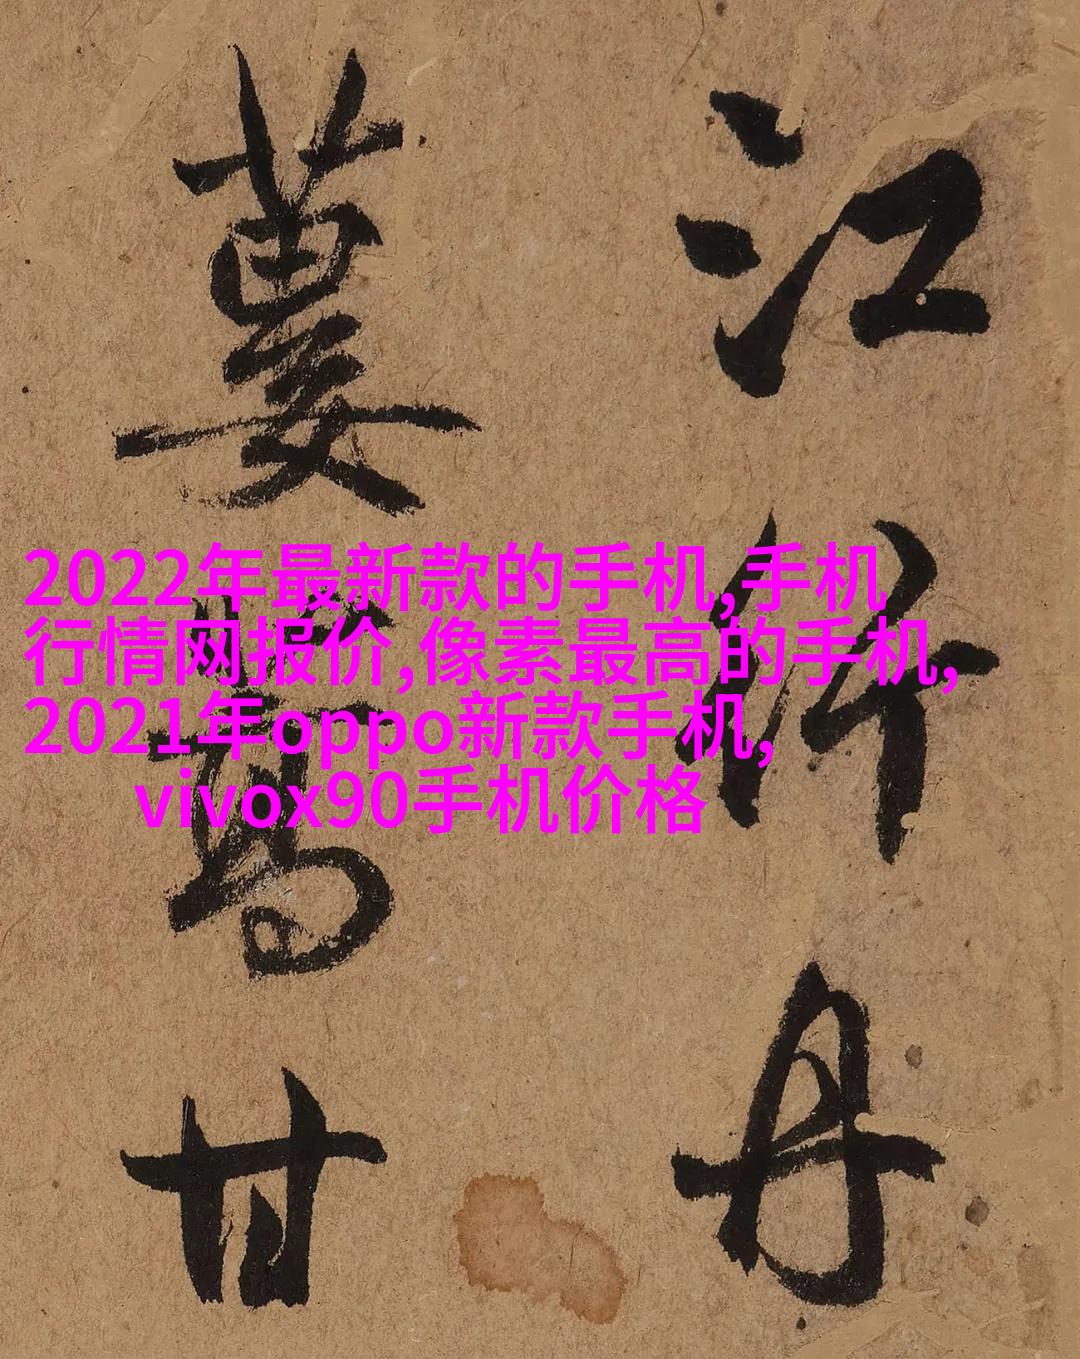 江竹丹
萬甘
2022年最新款的手机,手机
行情网报价,像素最高的手机,
2021年oppo新款手机,
vivox90手机价格